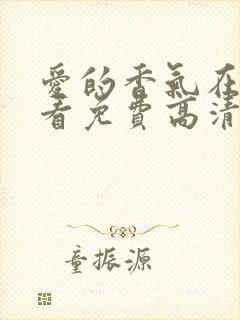 愛的香氣在
看免費高清
童振源